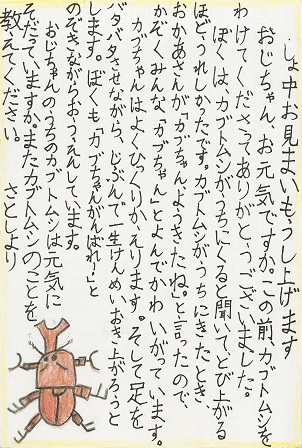 しょ中お見まいもうし上げます
おじちゃん、お元気ですか。この前、カブトムシを
わけてくださってありがとうございました。
ぼくは、カブトムシがうちにくると聞いて、とび上がる
ほどうれしかたです。カブトムシがうちにきたとき、
おかあさんが「カブちゃん、ようきたね。」と言ったので、
かぞくみんな、「カブちゃん」とよんでかわいがっています。
カブちゃんはよくひっくりかえります。そして足を
バタバタさせながら、じぶんで一生けんめいおき上がろうと
します。ぼくも「カブちゃんがんばれー!」と
のぞきながらおうえんしています。
おじちゃんのうちのカブトムシは元気に
そだっていますか。またカブトムシのことを
教えてください。
さとしより